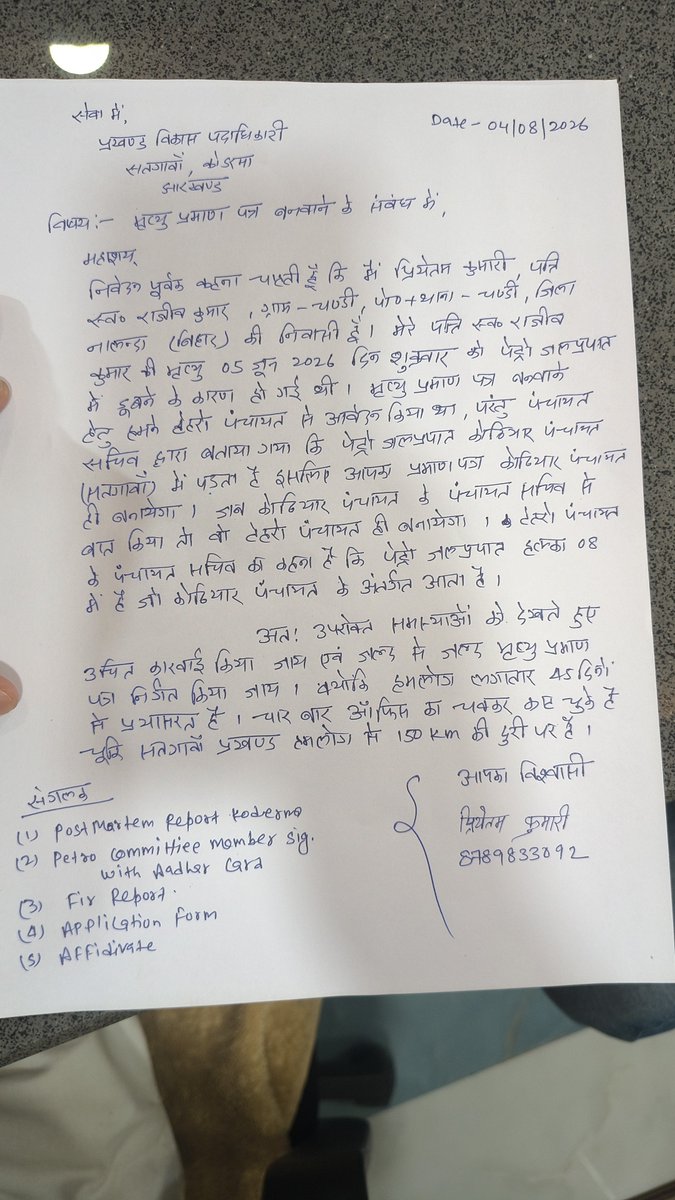 सेवा में,
Date - 04/08/2026
प्रखण्ड विकास पदाधिकारी
सतगावाँ, कोडरमा
झारखण्ड
विषय:- मृत्यु प्रमाण पत्र बनवाने के संबंध में,
महाशय,
निवेदन पूर्वक कहना चाहती हूँ कि मैं प्रियेतम कुमारी, पति
स्व० राजीव कुमार, ग्राम - चण्डी, पो०+थाना - चण्डी, जिला
नालन्दा (बिहार) की निवासी हूँ। मेरे पति स्व० राजीव
कुमार की मृत्यु 05 जून 2026 दिन शुक्रवार को पेट्रो जलप्रपात
में डूबने के कारण हो गई थी। मृत्यु प्रमाण पत्र बनवाने
हेतु हमने टेहरो पंचायत से आवेदन किया था, परंतु पंचायत
सचिव द्वारा बताया गया कि पेट्रो जलप्रपात कोठियार पंचायत
(सतगावाँ) में पड़ता है इसलिए आपका प्रमाण पत्र कोठियार पंचायत
ही बनायेगा। जब कोठियार पंचायत के पंचायत सचिव से
बात किया तो वो टेहरो पंचायत ही बनायेगा। टेहरो पंचायत
के पंचायत सचिव का कहना है कि पेट्रो जलप्रपात हल्का 08
में है जो कोठियार पंचायत के अंतर्गत आता है।
अत: उपरोक्त समस्याओं को देखते हुए
उचित कारवाई किया जाय एवं जल्द से जल्द मृत्यु प्रमाण
पत्र निर्गत किया जाय। क्योंकि हमलोग लगातार 45 दिनों
से प्रयासरत है। चार बार ऑफिस का चक्कर काट चुके है
चूकि सतगावाँ प्रखण्ड हमलोग से 150 km की दुरी पर है।
आपका विश्वासी
प्रियेतम कुमारी
8789833092
संलग्नक
(1) Postmartem Report Koderma
(2) Petro committiee member sig.
with Aadhar Card
(3) Fir Report.
(4) Application form
(5) Affidivate